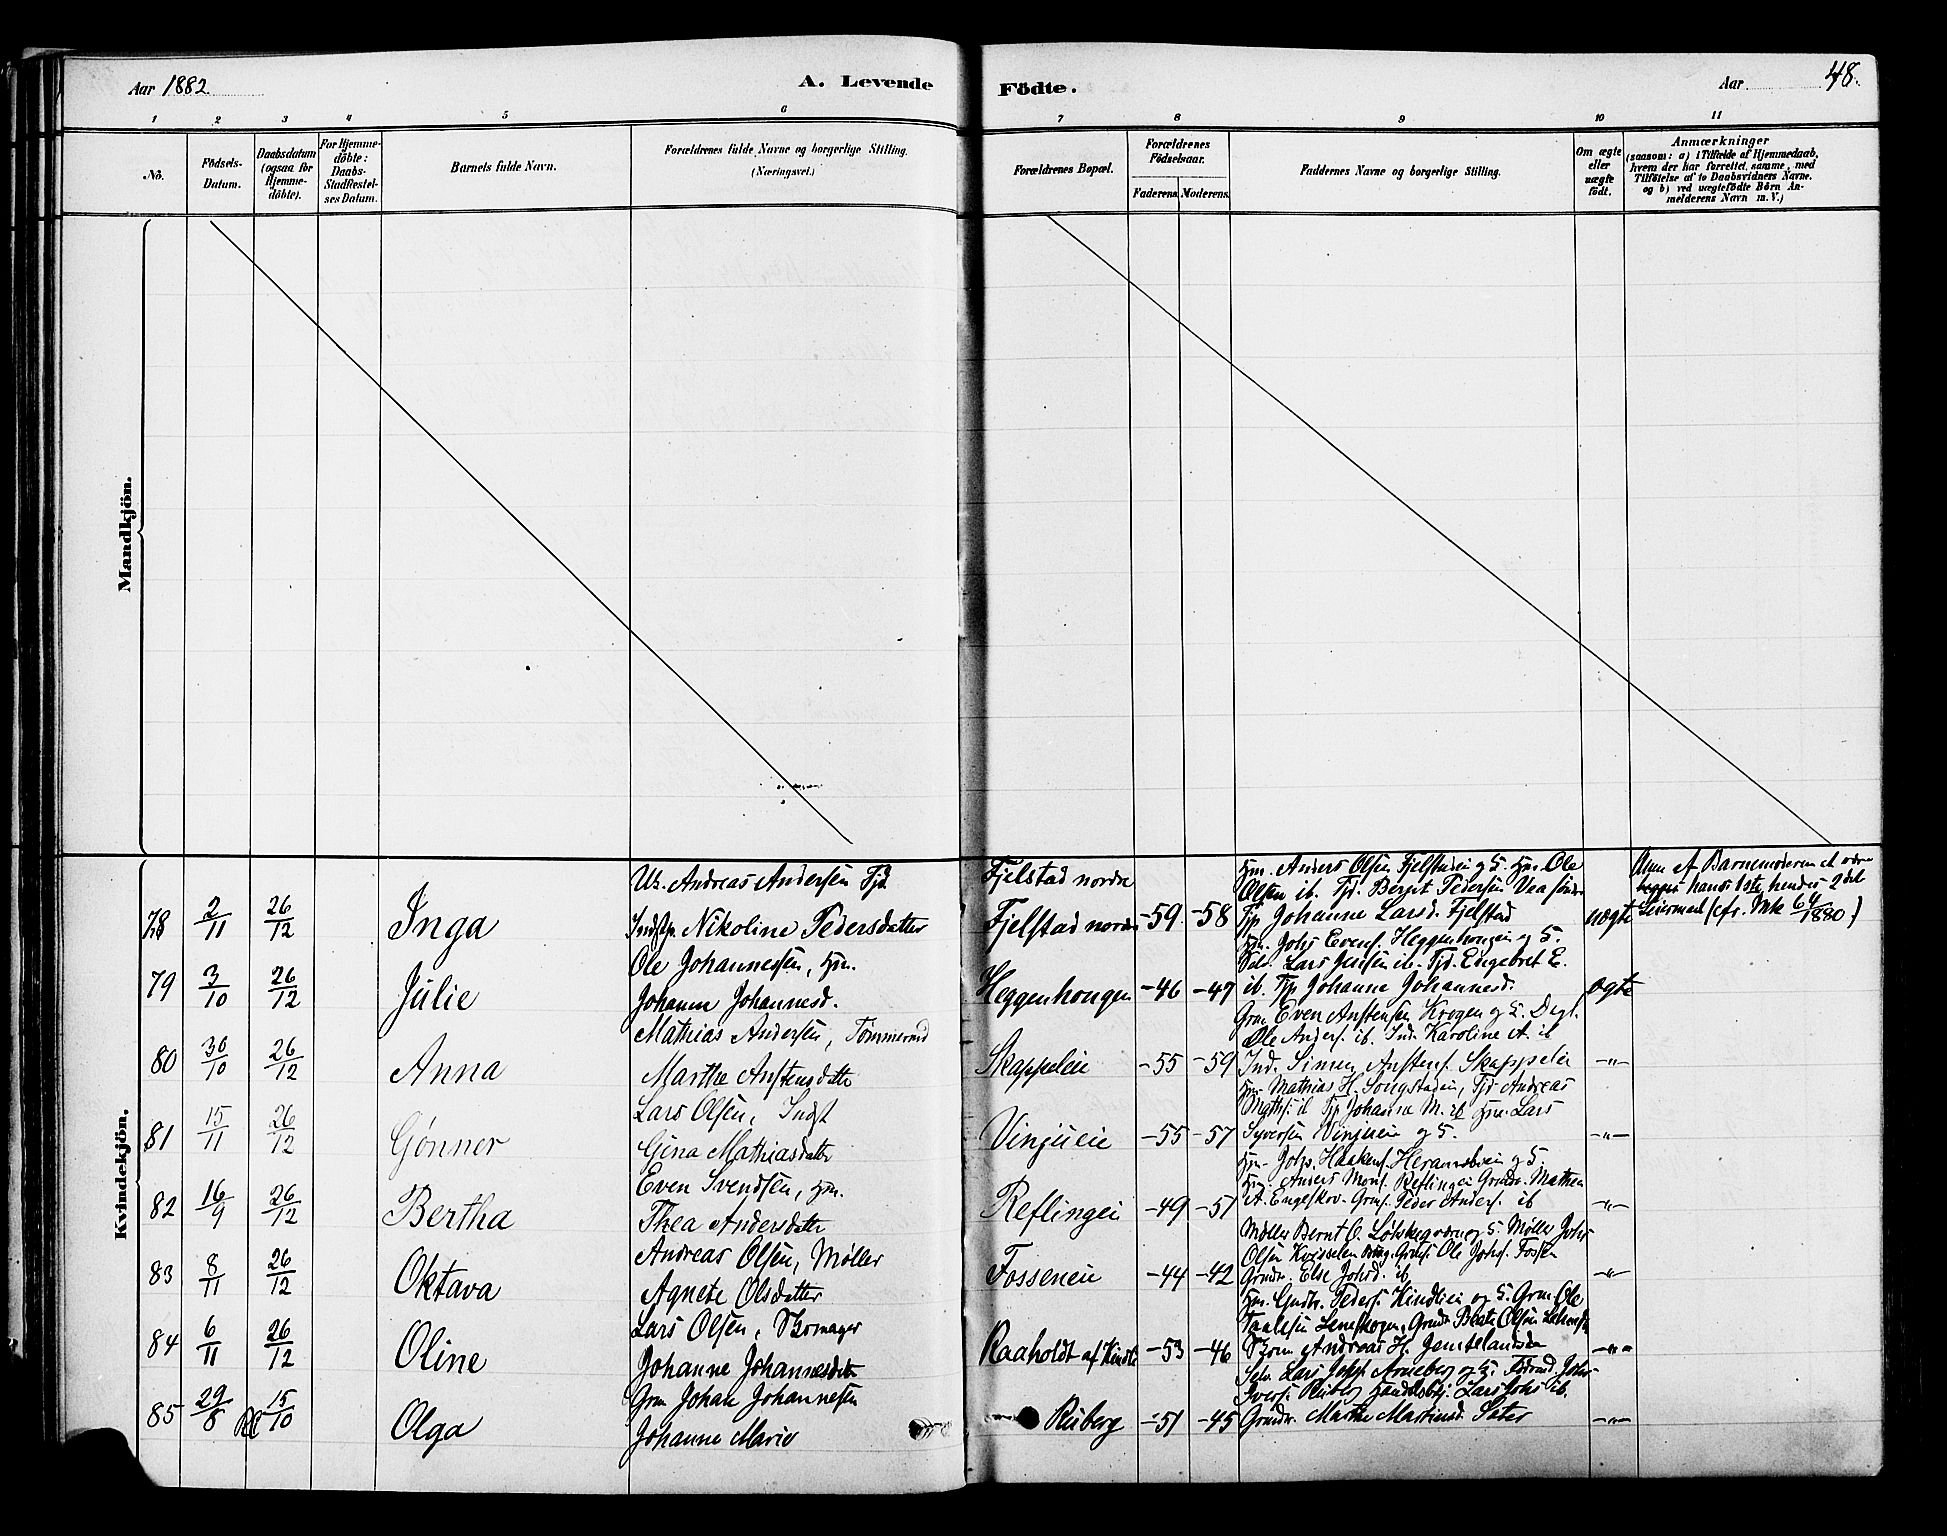 Aar 1882.
A. Levende
Födte.
Aar 48.
1 2 3 4 5 6 7 8 9 10 11
No.
Födsels-
Datum.
Daabsdatum
(ogsaa for
Hjemme-
döbte).
For Hjemme-
döbte:
Daabs-
Stadfæstel-
ses Datum.
Barnets fulde Navn.
Forældrenes fulde Navne og borgerlige Stilling.
(Næringsvei.)
Forældrenes Bopæl.
Forældrenes
Födselsaar.
Faderens. Moderens.
Faddernes Navne og borgerlige Stilling.
Om ægte
eller
uægte
födt.
Anmærkninger
(saasom: a) i Tilfælde af Hjemmedaab,
hvem der har forrettet samme, med
Tilföielse af to Daabsvidners Navne,
og b) ved uægtefödte Börn An-
melderens Navn m. V.)
Mandkjön.
Kvindekjön.
78 2/11 26/12 Inga
Andreas Andersen
Nikoline Pedersdatter
Fjelstad nordre
Fjelstad nordre
-59 -58
Anders Olsen Fjelstadei og H. Hm. Ole
Olsen ib. Tjd. Bernt Pedersen
Tjp Johanne Larsd. Fjelstad
uægte
Anm af Barnemoderen
hans 1ste hendes 2det
Leiermaal (cfr. 64/1880)
79 3/10 26/12 Julie
Ole Johannessen, Hm.
Johanne Johannesd.
Heggenhougen
-46 -47
Hm. Johs Evens. Heggenhougen og H.
Lars Jensen ib. Tjd. Engebret E.
ib. Tjp Johanne Johannesd.
ægte
80 30/10 26/12 Anna
Mathias Andersen, Tømmermd
Marthe Anstensdatter
Skappeleie
-55 -59
Grm Even Anstensen Krogen og H.
Ole Anders. ib. Ind. Karoline A. ib
Ind. Simen Anstens. Skappeleie
-"-
81 15/11 26/12 Gønner
Lars Olsen, Indst
Gina Mathiasdatter
Vinjueie
-55 -57
Hm. Mathias H. Songstadeie, Tjd Andreas
Maths. ib Tjp Johanne M. ib Hm. Lars
Syversen Vinjueie og H.
-"-
82 16/9 26/12 Bertha
Even Svendsen, Hm.
Thea Andersdatter
Reflingei
-49 -51
Hm. Johs. Haakens. og H.
Hm. Anders Mons. Reflingei Mathea
A. Engeskov. Peder Anders. ib
-"-
83 8/11 26/12 Oktava
Andreas Olsen, Møller
Agnete Olsdatter
Fosseneie
-44 -42
Møller Bernt O. og H. Møller Johs
Olsen Ole Johs. Fossen
Else Johsd. ib
-"-
84 6/11 26/12 Oline
Lars Olsen, Skomager
Johanne Johannesdatter
Raaholdt af Kindli
-53 -46
Hm. Gudbr. Peders. Kindlieie og H. Grm. Ole
Beate Olsen
Skom Andreas H.
-"-
85 29/8 15/10 Olga
Grm Johan Johannesen
Johanne Marie
Ruberg
-51 -45
Selv. Lars Johs. Arneberg og H. Johs
Ivers. Ruberg Handelsbtj. Lars Johs ib.
Marthe Martinsd. Sater
-"-